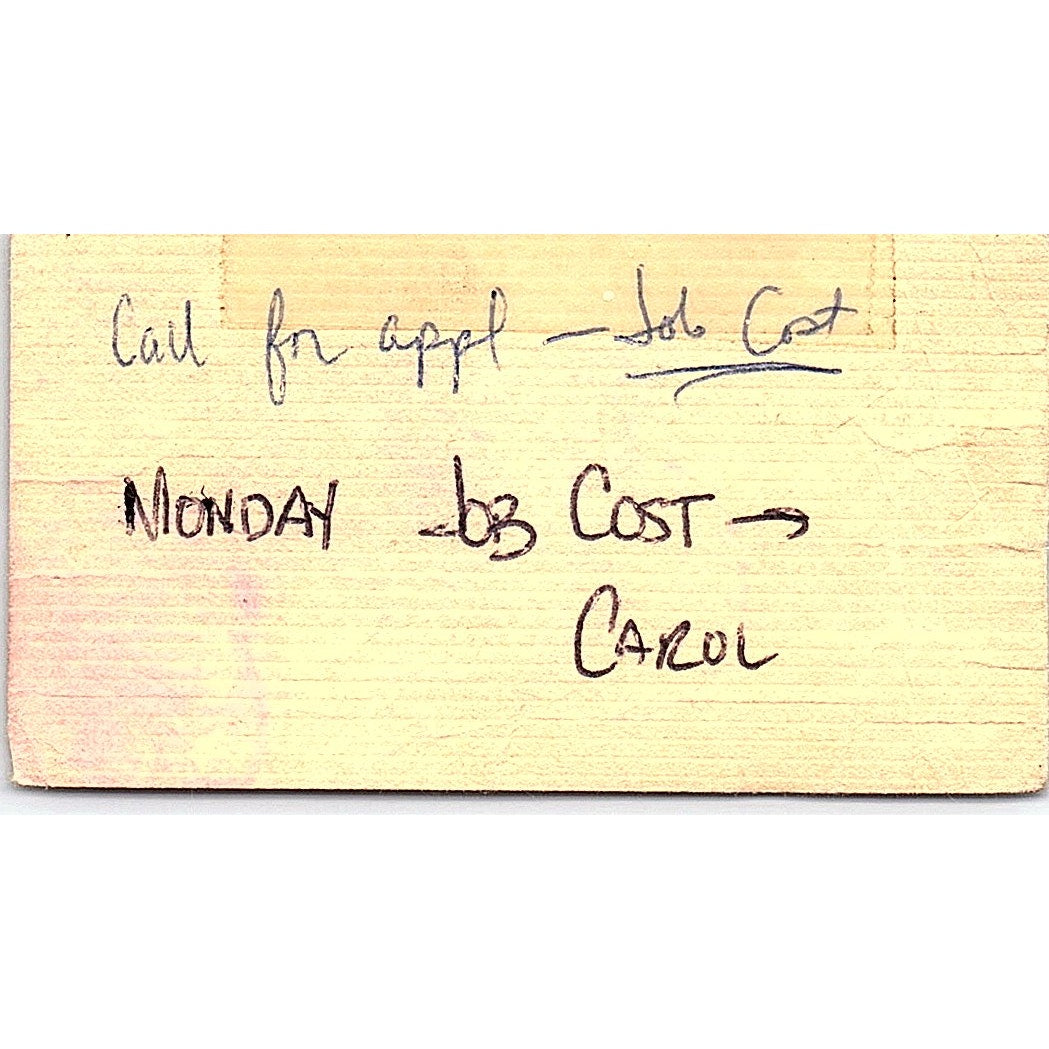 Call for appl — Job Cost
MONDAY JOB COST →
CAROL